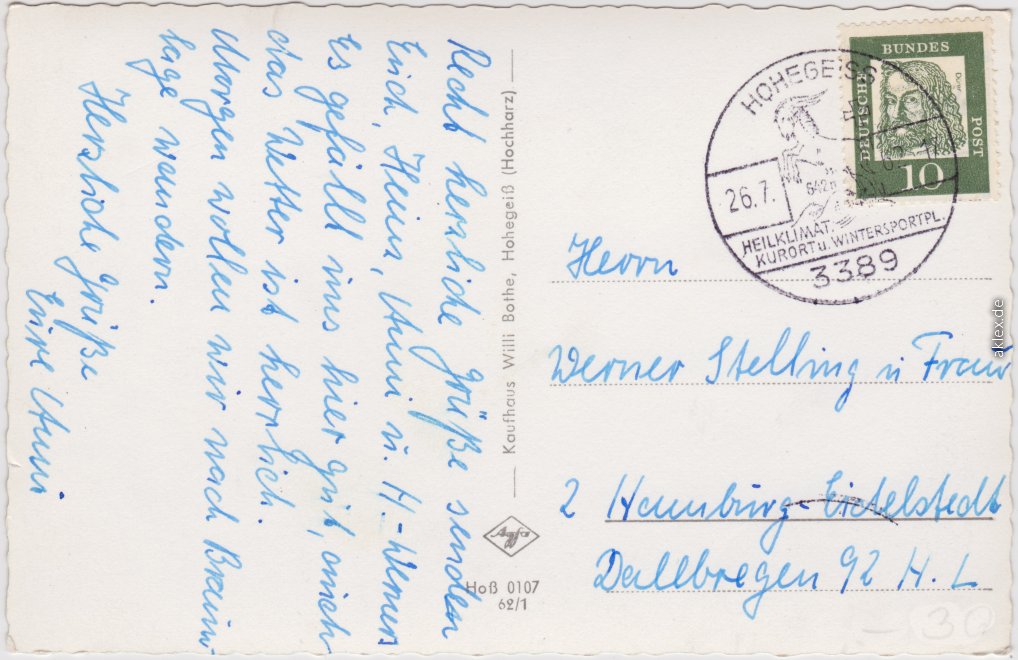 Recht herzliche Grüße senden
Euch, Heim, Mumi u. H.-Werner
Es gefällt uns hier gut, auch
das Wetter ist herrlich.
Morgen wollen wir nach Braun-
lage wandern.
Herzliche Grüße
Eure Mumi
Kaufhaus Willi Bothe, Hohegeiß (Hochharz)
Agfa
Hoß 0107
62/1
DEUTSCHE BUNDESPOST
Dürer
10
HOHEGEISS
26.7.
642m
HEILKLIMAT.
KURORT u. WINTERSPORTPL.
3389
Herrn
Werner Stelling u Frau
2 Hamburg-Eidelstedt
Dallbregen 92 H. L
30
aklex.de